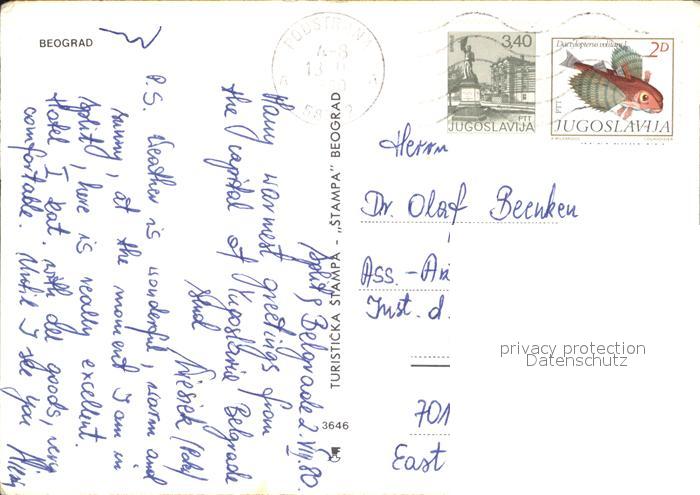 BEOGRAD
Split, Belgrade 2.VIII.80.
Many warmest greetings from
the capital of Yugoslavia Belgrade
send
P.S. Weather is wonderful, warm and
sunny, at the moment I am in
Split, here is really excellent.
Hotel I kat. with all goods, very
comfortable. Until I see you
TURISTIČKA ŠTAMPA - „ŠTAMPA" BEOGRAD
3646
3,40
PTT
JUGOSLAVIJA
Dactylopterus volitans L
2D
PTT
JUGOSLAVIJA
Herrn
Dr. Olaf Beenken
Ass. -
Inst. d.
701
East
privacy protection
Datenschutz